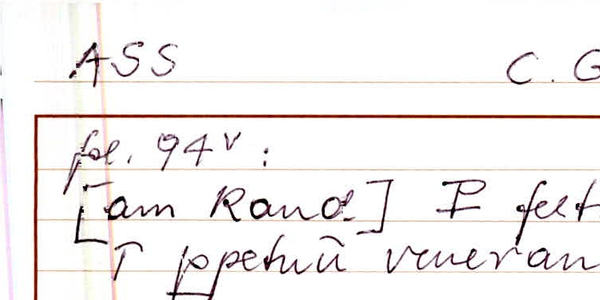 ASS C. G
fol. 94v:
[am Rand] I fest
ī ppetuū veneran